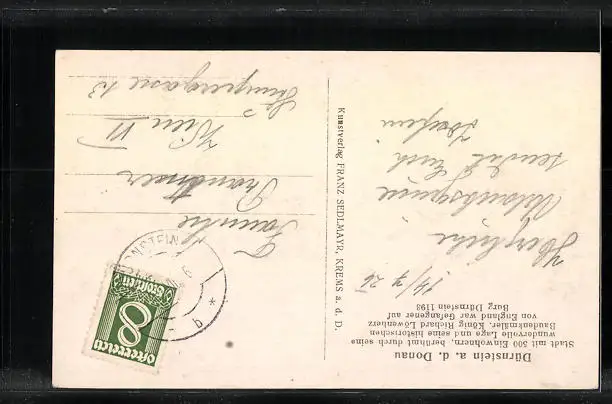 Dürnstein a. d. Donau
Stadt mit 500 Einwohnern, berühmt durch seine
wundervolle Lage und seine historischen
Baudenkmäler. König Richard Löwenherz
von England war Gefangener auf
Burg Dürnstein 1193
14/7 26
Herzliche
Urlaubsgrüsse
sendet Euch
Kunstverlag FRANZ SEDLMAYR, KREMS a. d. D.
Familie
Wien VI
13
8
Groschen
Österreich
b *